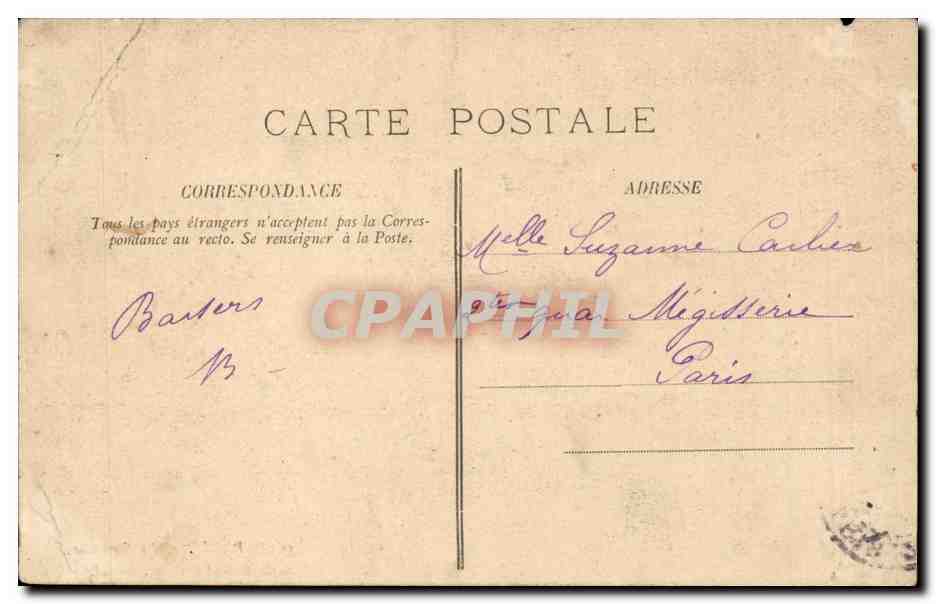 CARTE POSTALE
CORRESPONDANCE
Tous les pays étrangers n'acceptent pas la Corres-
pondance au recto. Se renseigner à la Poste.
B
ADRESSE
Melle Suzanne Carlier
quai Mégisserie
Paris
CPAPHIL